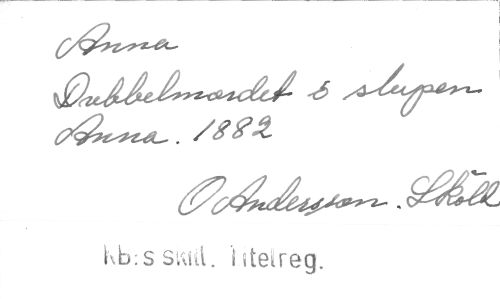 Anna
Dubbelmordet å slupen
Anna. 1882
O Andersson. Sköld
kb:s skill. Titelreg.